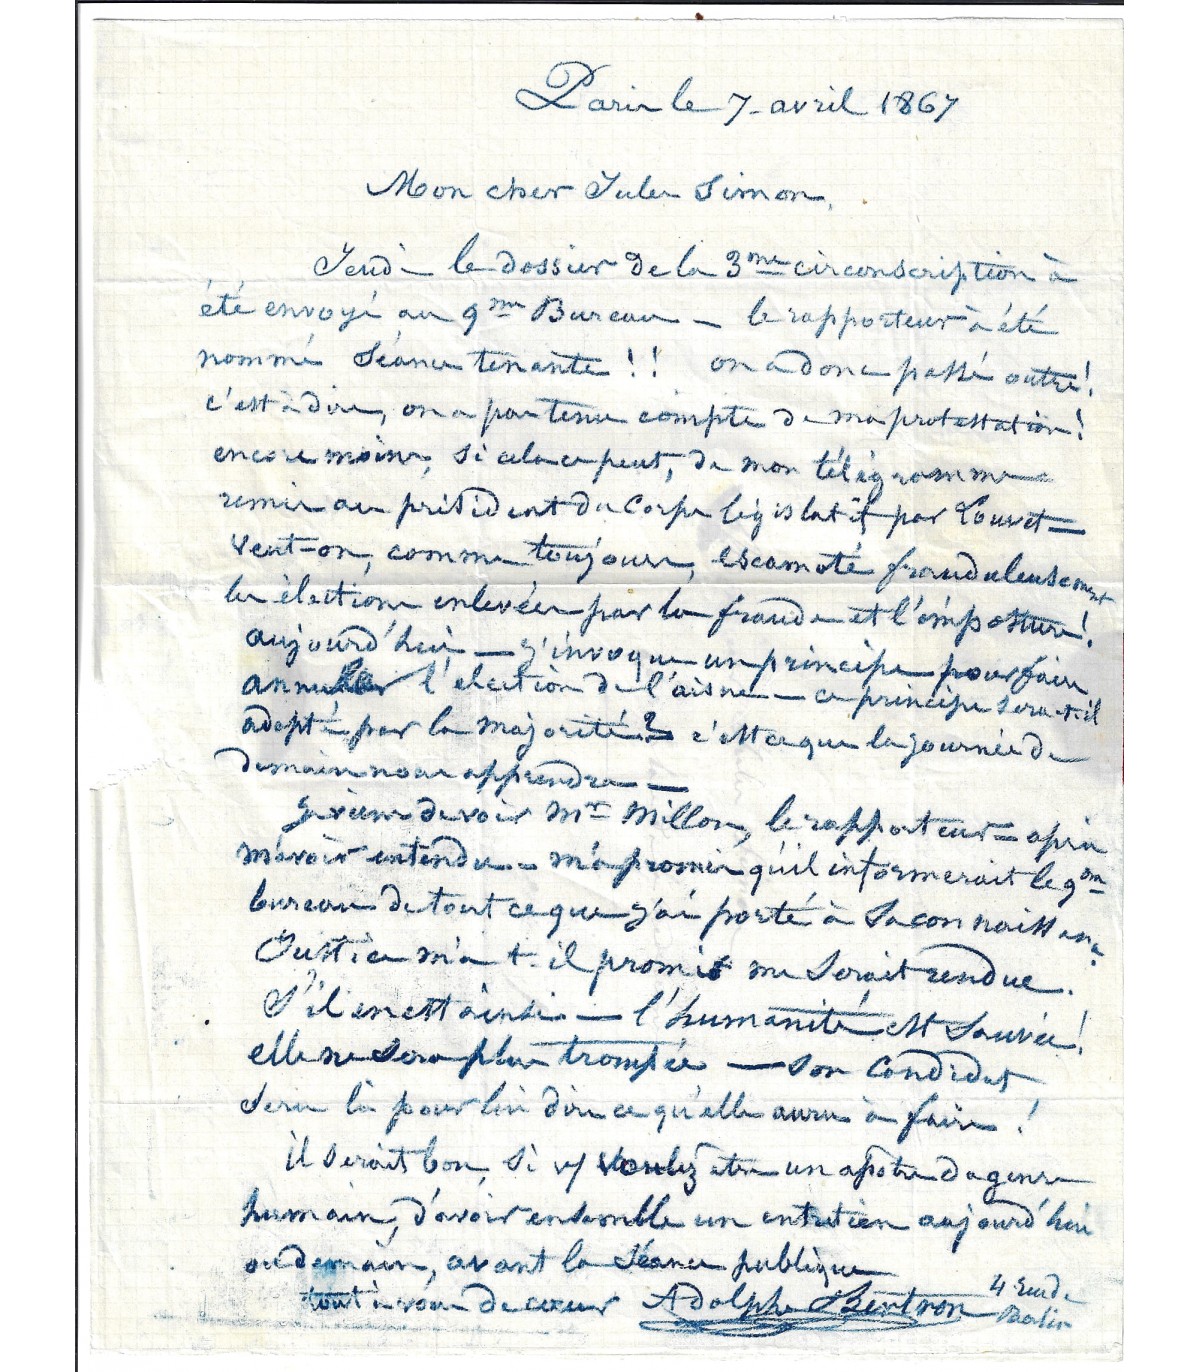 Paris le 7 avril 1867
Mon cher Jules Simon,
Jeudi le dossier de la 3me circonscription à
été envoyé au 9me Bureau — le rapporteur à été
nommé séance tenante !! on a donc passé outre !
c'est à dire, on a pas tenu compte de ma protestation !
encore moins, si cela ce peut, de mon télégramme
remis au président du Corps législatif par Louvet =
veut-on, comme toujours, escamoté frauduleusement
les élections enlevées par la fraude et l'imposture !
aujourd'hui — j'invoque un principe pour faire
annuller l'élection de l'aisne — ce principe sera-t-il
adopté par la majorité ? c'est ce que la journée de
demain nous apprendra —
Je viens de voir Mr Millon, le rapporteur = après
m'avoir entendu — m'a promis qu'il informerait le 9me
bureau de tout ce que j'ai porté à sa connaissance
Justice m'a t-il promis me serait rendue.
S'il en est ainsi — l'humanité est sauvée !
elle ne sera plus trompée — son candidat
sera là pour lui dire ce qu'elle aura à faire !
il serait bon, si v/ voulez etre un apotre du genre
humain, d'avoir ensemble un entretien aujourd'hui
ou demain, avant la séance publique
tout à vous de cœur Adolphe Bertron 4 rue de
Berlin